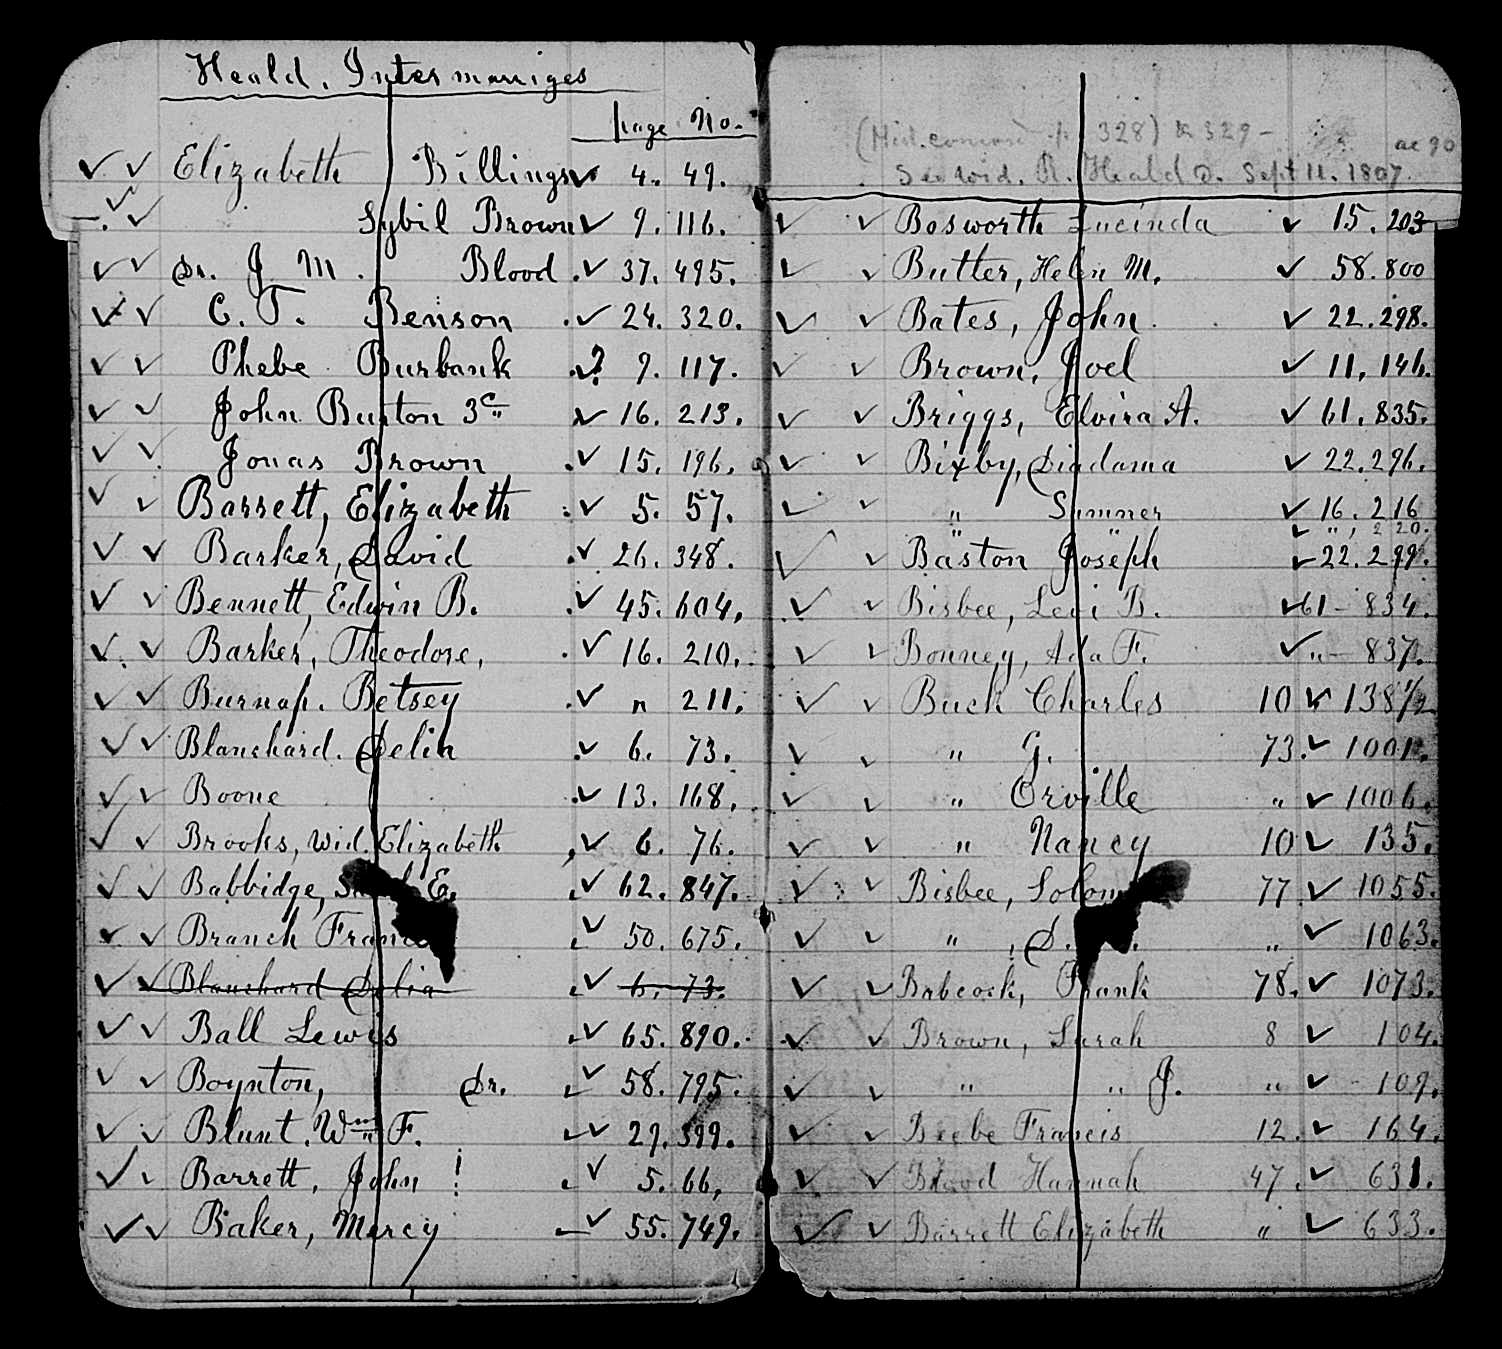 Heald. Intermarriges
page No.
Elizabeth Billings 4. 49.
Sybil Brown 9. 116.
Dr. J. M. Blood 37. 495.
C. T. Benson 24. 320.
Phebe Burbank ? 9. 117.
John Buston 3d 16. 213.
Jonas Brown 15. 196.
Barrett, Elizabeth 5. 57.
Barker, David 26. 348.
Bennett, Edwin B. 45. 604.
Barker, Theodore, 16. 210.
Burnap. Betsey " 211.
Blanchard. Delia 6. 73.
Boone 13. 168.
Brooks, wid. Elizabeth 6. 76.
Babbidge, E. 62. 847.
Branch 50. 675.
Blanchard Delia 6. 73.
Ball Lewis 65. 890.
Boynton, Dr. 58. 795.
Blunt. Wm F. 29. 399.
Barrett, John ! 5. 66,
Baker, Mercy 55. 749.
328) & 329 -
ae 90
See wid. R. Heald D. Sept 11. 1807.
Bosworth Lucinda 15. 203
Butler, Helen M. 58. 800
Bates, John 22. 298.
Brown, Joel 11, 146.
Briggs, Elvira A. 61. 835.
Bixby, Diadama 22. 296.
" Sumner 16. 216
" " ", 220.
Baston Joseph 22. 299.
Bisbee, Levi B. 61 - 834.
Bonney, Ada F. " - 837.
Buck Charles 10 138 1/2
" G. 73. 1001.
" Orville " 1006.
" Nancy 10 135.
Bisbee, 77 1055.
" , D. " 1063.
Babcock, Frank 78. 1073.
Brown, Sarah 8 104.
" " J. " 109.
Beebe Francis 12. 164.
Blood Hannah 47. 631.
Barrett Elizabeth " 633.